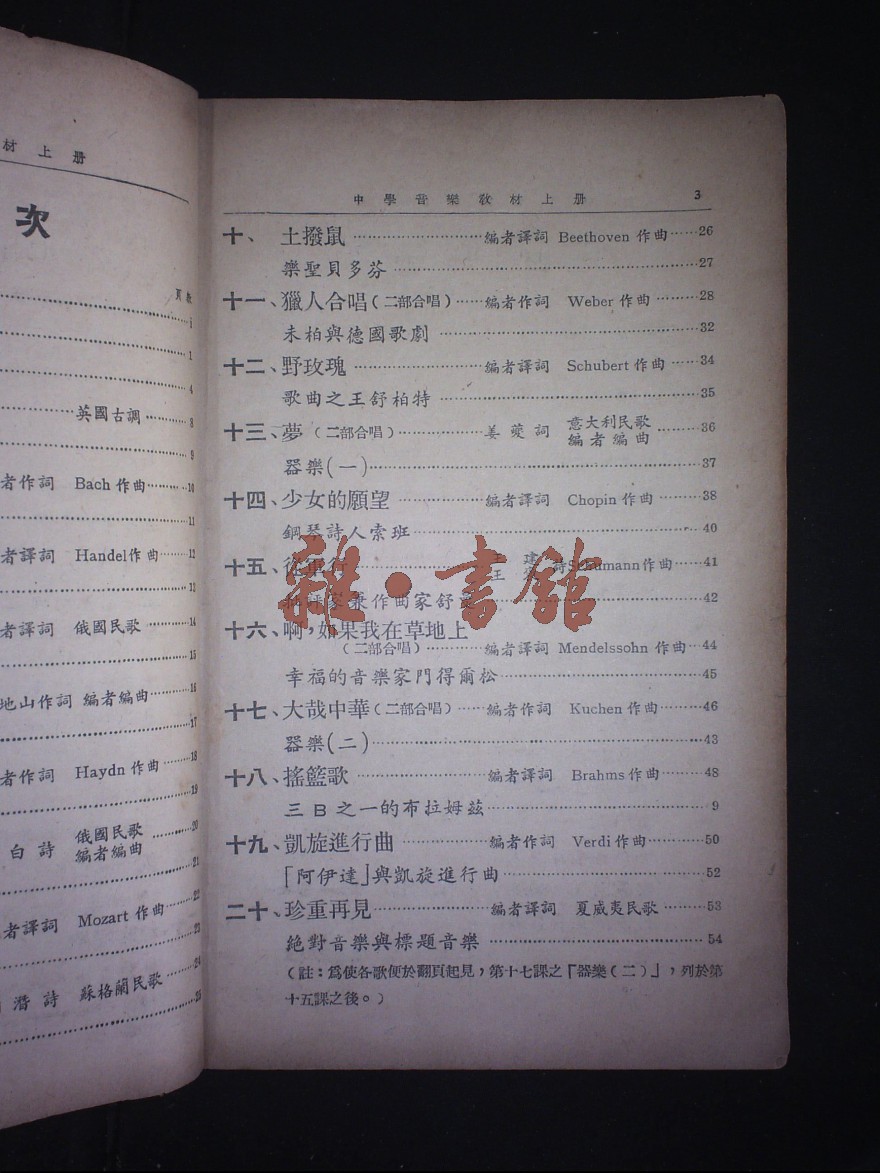 材上册
次
頁數
i
1
4
英國古調 8
9
者作詞 Bach 作曲 10
11
者譯詞 Handel作曲 12
13
者譯詞 俄國民歌 14
15
地山作詞 編者編曲 16
17
者作詞 Haydn 作曲 18
19
白詩 俄國民歌 20
編者編曲
21
者譯詞 Mozart 作曲 22
23
潛詩 蘇格蘭民歌 24
25
中學音樂教材上册 3
十、 土撥鼠 編者譯詞 Beethoven 作曲 26
樂聖貝多芬 27
十一、獵人合唱(二部合唱) 編者作詞 Weber 作曲 28
未柏與德國歌劇 32
十二、野玫瑰 編者譯詞 Schubert 作曲 34
歌曲之王舒柏特 35
十三、夢(二部合唱) 姜夔詞 意大利民歌 36
編者編曲
器樂(一) 37
十四、少女的願望 編者譯詞 Chopin 作曲 38
鋼琴詩人索班 40
十五、從軍行 王建 詩Schumann作曲 41
王
批評家兼作曲家舒 42
十六、啊,如果我在草地上
(二部合唱) 編者譯詞 Mendelssohn 作曲 44
幸福的音樂家門得爾松 45
十七、大哉中華(二部合唱) 編者作詞 Kuchen 作曲 46
器樂(二) 43
十八、搖籃歌 編者譯詞 Brahms 作曲 48
三B之一的布拉姆茲 9
十九、凱旋進行曲 編者作詞 Verdi 作曲 50
「阿伊達」與凱旋進行曲 52
二十、珍重再見 編者譯詞 夏威夷民歌 53
絕對音樂與標題音樂 54
(註:爲使各歌便於翻頁起見,第十七課之「器樂(二)」,列於第
十五課之後。)
雜·書館